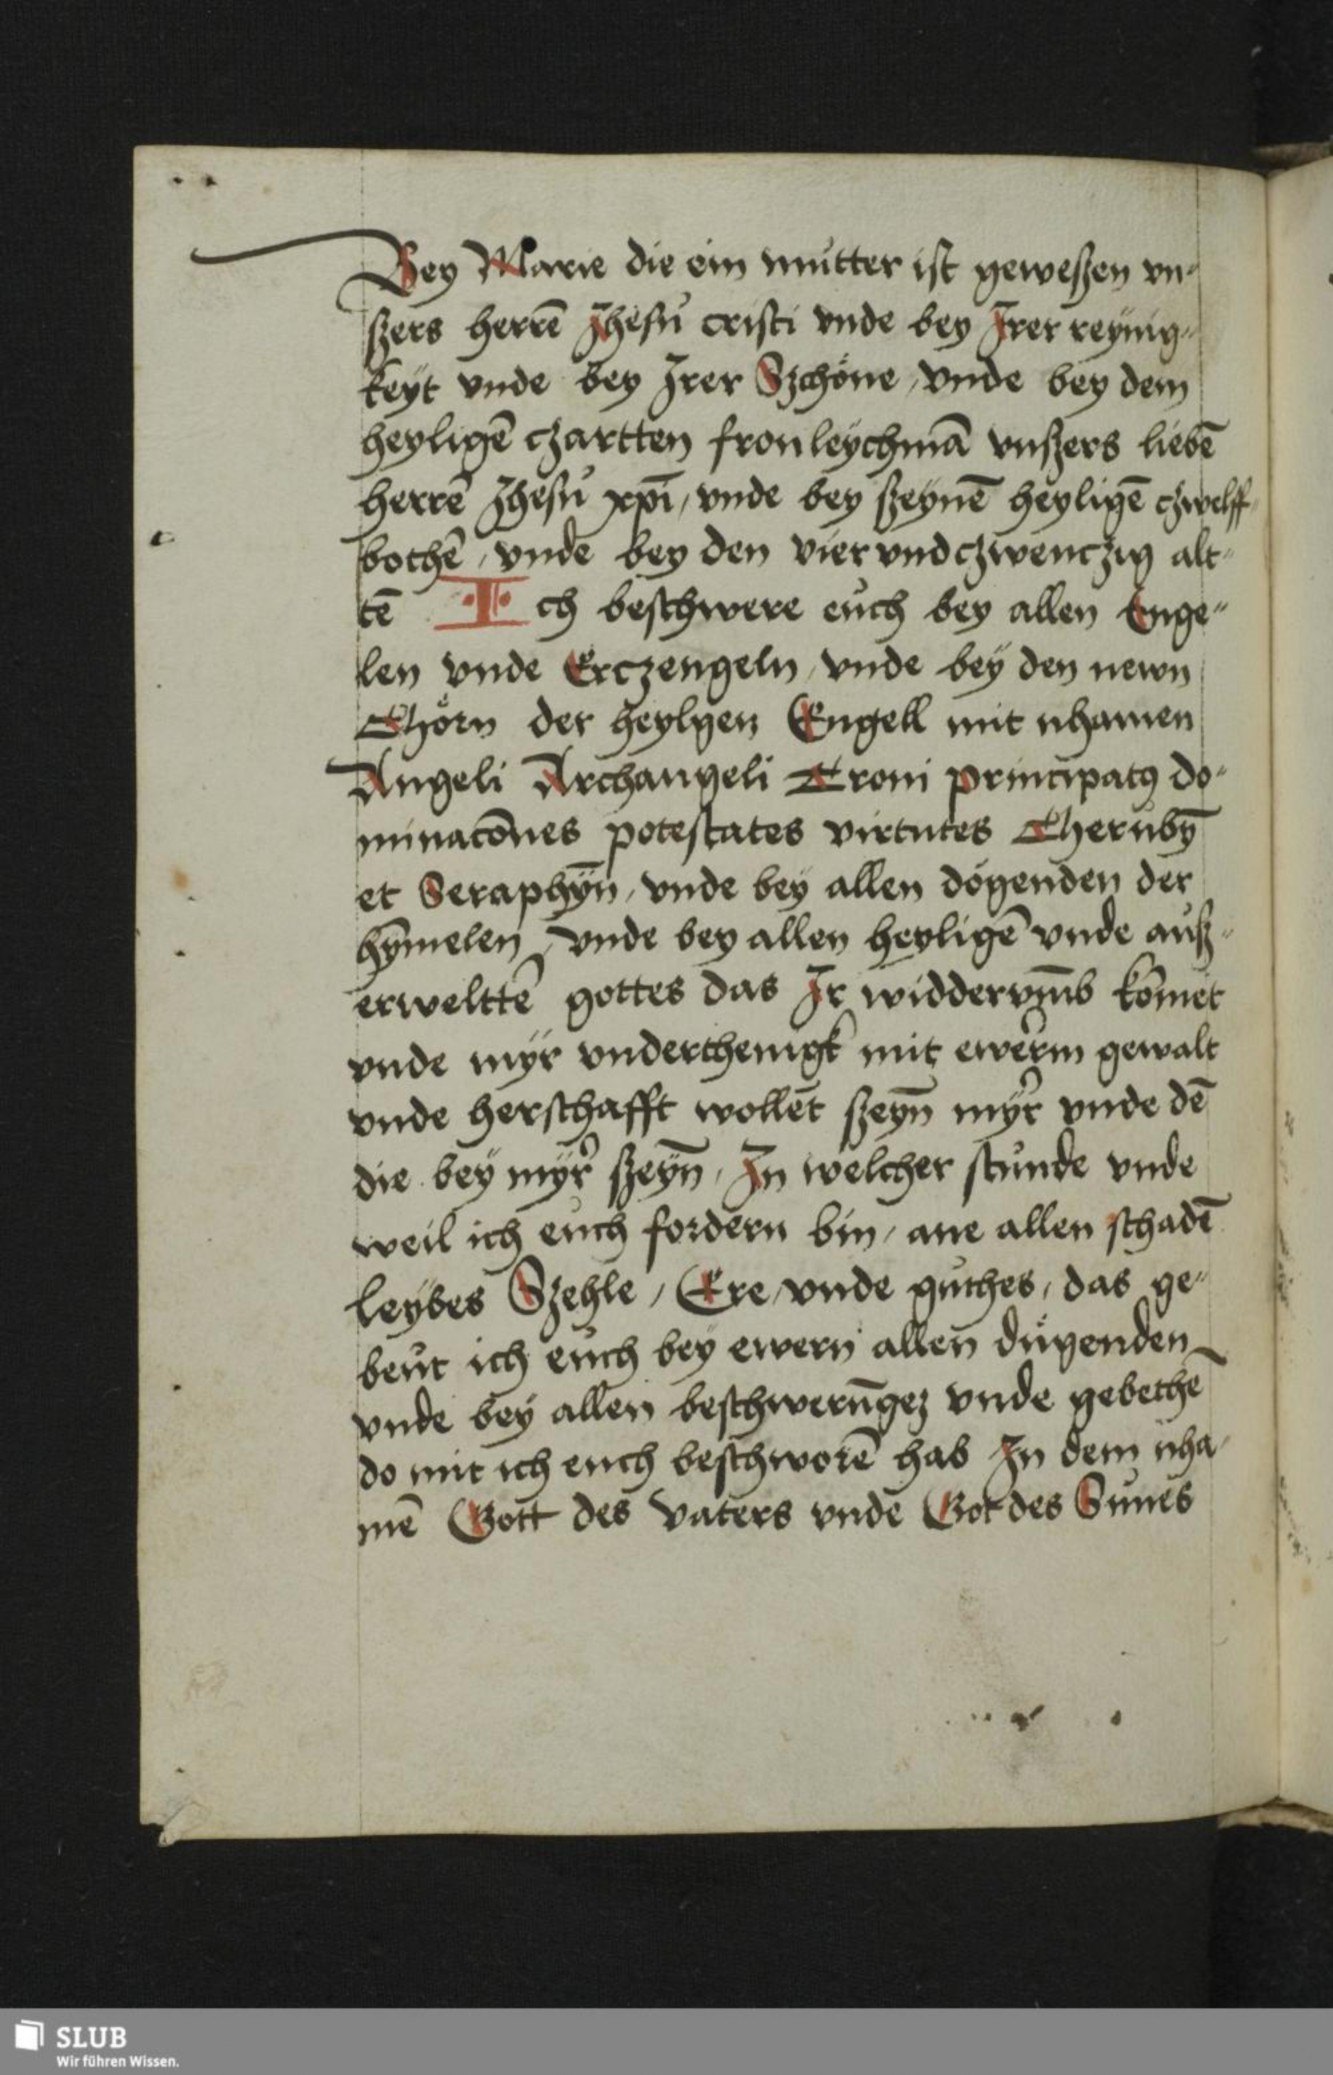 Bey Marie die ein mutter ist geweßen vn⸗
ßers herrē Jhesu cristi vnde bey Irer reynig⸗
keyt vnde bey Irer Szchöne, vnde bey dem
heyligē czartten fronleychnā vnßers liebē
herrē Jhesu xpī, vnde bey ßeynē heyligē czwelff⸗
bothē, vnde bey den vier vnd czwenczig alt⸗
tē Ich beschwere euch bey allen Enge⸗
len vnde Erczengeln, vnde bey den newn
Chörn der heylgen Engell mit nhamen
Angeli Archangeli Troni principatꝰ do⸗
minacōnes potestates virtutes Cherubȳ
et Seraphȳn, vnde bey allen dögenden der
hȳmelen, vnde bey allen heyligē vnde auß⸗
erwelttē gottes das Ir widdervm̄b kōmet
vnde myr vnderthenigk mit ewerm gewalt
vnde herschafft wollēt ßeyn̄ myr vnde dē
die bey myr ßeyn̄, In welcher stunde vnde
weil ich euch fordern bin, ane allen schadē
leybes Szehle, Ere, vnde guthes, das ge⸗
beut ich euch bey ewern allen dügenden
vnde bey allen beschwerūgez vnde gebethē
do mit ich euch beschworē hab In dem nha⸗
mē Gott des vaters vnde Got des Sunes
SLUB
Wir führen Wissen.